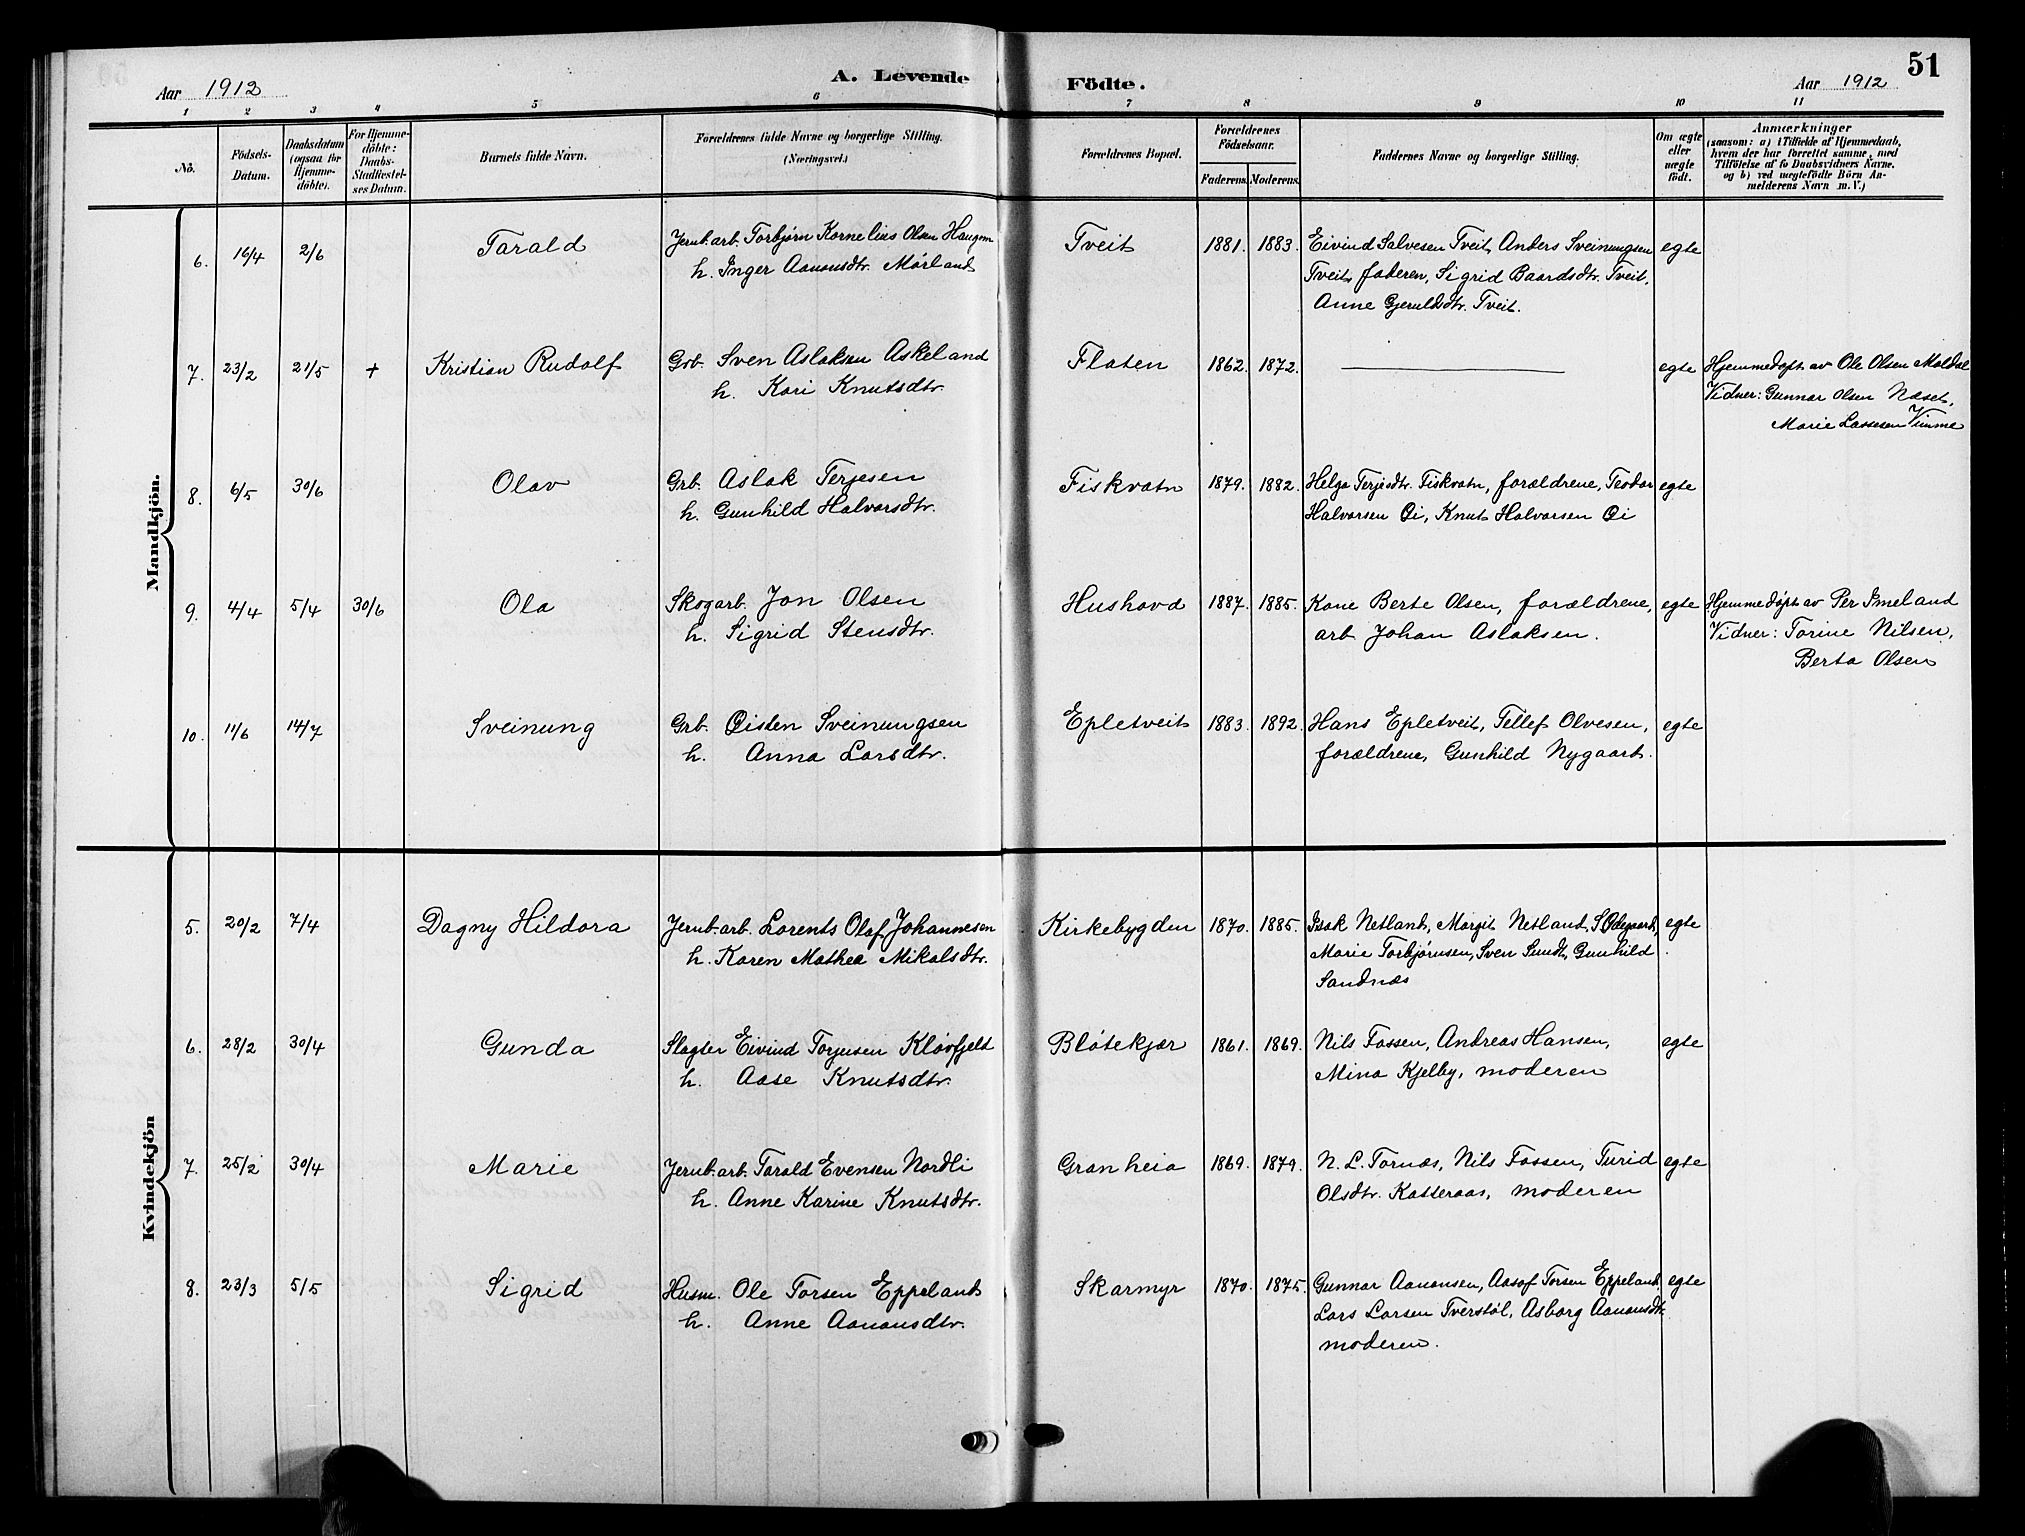 51
Aar 1912
A. Levende Födte.
Aar 1912
1 2 3 4 5 6 7 8 9 10 11
No.
Födsels-
Datum.
Daabsdatum
(ogsaa for
Hjemme-
döbte).
For Hjemme-
döbte:
Daabs-
Stadfestel-
ses Datum.
Barnets fulde Navn.
Forældrenes fulde Navne og borgerlige Stilling.
(Næringsvei.)
Forældrenes Bopæl.
Forældrenes
Födselsaar.
Faderens. Moderens.
Faddernes Navne og borgerlige Stilling.
Om ægte
eller
uægte
født.
Anmærkninger
(saasom: a) i Tilfælde af Hjemmedaab,
hvem der har forrettet samme, med
Tilföielse af to Daabsvidners Navne.
og b) ved uægtefödte Börn An-
melderens Navn m. V.)
Mandkjön.
6. 16/4 2/6 Tarald Jernb.arb. Torbjørn Kornelius Olsen Haugom Tveit 1881. 1883. Eivind Salvesen Tveit, Anders Sveinungsen egte
h. Inger Aanonsdtr. Mørland Tveit, faderen, Sigrid Baardsdtr. Tveit,
Anne Gjeruldsdtr. Tveit.
7. 23/2 21/5 + Kristian Rudolf Grb. Sven Aslaksen Askeland Flaten 1862. 1872. egte Hjemmedøpt av Ole Olsen Moldal
h. Kari Knutsdtr. Vidner: Gunnar Olsen Næset,
Marie Lassesen Vimme
8. 6/5 30/6 Olav Grb. Aslak Terjesen Fiskvatn 1879. 1882. Helga Terjesdtr. Fiskvatn, forældrene, Teodor egte
h. Gunhild Halvorsdtr. Halvorsen Øi, Knut Halvorsen Øi
9. 4/4 5/4 30/6 Ola Skogarb. Jon Olsen Hushovd 1887. 1885. Kone Berte Olsen, forældrene, egte Hjemmedøpt av Per Imeland
h. Sigrid Stensdtr. arb Johan Aslaksen. Vidner: Torine Nilsen,
Berta Olsen
10. 11/6 14/7 Sveinung Grb. Øisten Sveinungsen Epletveit 1883. 1892. Hans Epletveit, Tellef Olvesen, egte
h. Anna Larsdtr. forældrene, Gunhild Nygaard.
Kvindekjön
5. 20/2 7/4 Dagny Hildora Jernb.arb. Lorents Olaf Johannesen Kirkebygden 1870. 1885. Isak Netland, Margit Netland, S. Ødegaard, egte
h. Karen Mathea Mikalsdtr. Marie Torbjørnsen, Sven Sundt, Gunhild
Sandnæs
6. 28/2 30/4 Gunda Slagter Eivind Torjusen Kløvfjell Bløtekjær 1861. 1869. Nils Fossen, Andreas Hansen, egte
h. Aase Knutsdtr. Mina Kjelby, moderen
7. 25/2 30/4 Marie Jernb.arb. Tarald Evensen Nordli Granheia 1869. 1879. N. L. Tornæs, Nils Fossen, Turid egte
h. Anne Karine Knutsdtr. Olsdtr. Katteraas, moderen
8. 23/3 5/5 Sigrid Husm. Ole Torsen Eppeland Skarmyr 1870. 1875. Gunnar Aanonsen, Aasof Torsen Eppeland, egte
h. Anne Aanonsdtr. Lars Larsen Tverstøl, Asborg Aanonsdtr.
moderen.